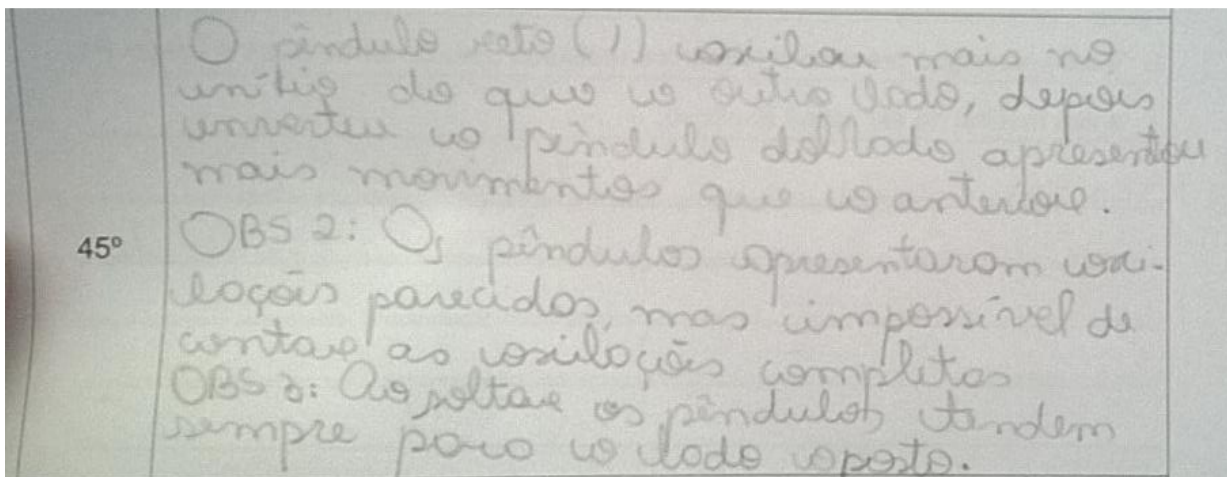 O pêndulo reto (1) oxilou mais no
início do que o outro lado, depois
inverteu o pêndulo do lado apresentou
mais movimentos que o anterior.
45º
OBS 2: Os pêndulos apresentaram oxi-
lações parecidas, mas impossível de
contar as oxilações completas
OBS 3: Ao soltar os pêndulos tendem
sempre para o lado oposto.